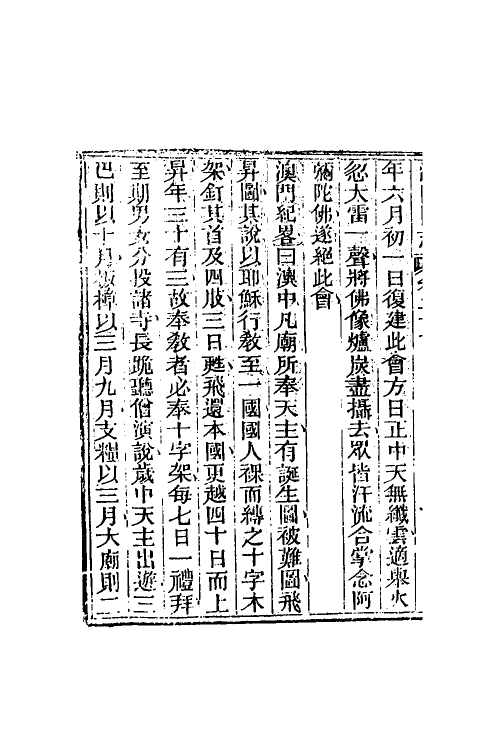 年六月初一日復建此會方日正中天無纖雲適舉火
忽大雷一聲將佛像爐炭盡攝去眾皆汗流合掌念阿
彌陀佛遂絕此會
澳門紀畧曰澳中凡廟所奉天主有誕生圖被難圖飛
昇圖其說以耶穌行教至一國國人裸而縳之十字木
架釘其首及四肢三日甦飛還本國更越四十日而上
昇年三十有三故奉教者必奉十字架每七日一禮拜
至期男女分投諸寺長跪聽僧演說歲中天主出遊三
巴則以十月板樟以三月九月支糧以三月大廟則二